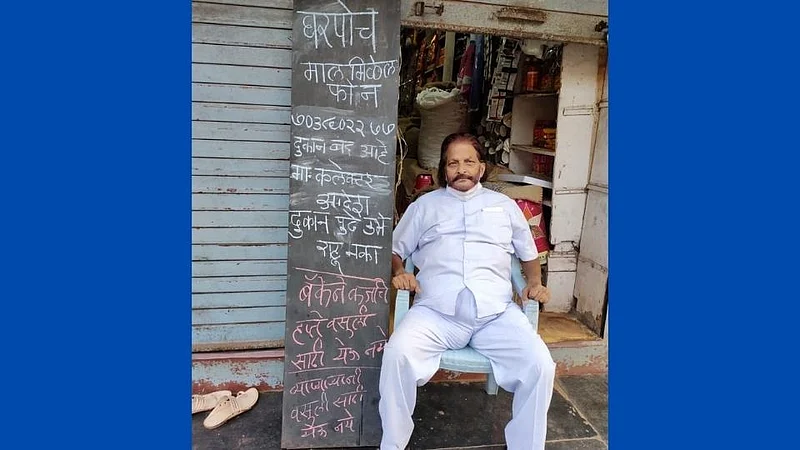 घरपोच
माल मिळेल
फोन
७०३८६०२२७७
दुकान बंद आहे
मा. कलेक्टर
आदेश
दुकान पुढे उभे
राहू नका
बँकेने कर्जाचे
हप्ते वसुली
साठी येऊ नये
व्यापाऱ्यांनी
वसुली साठी
येऊ नये